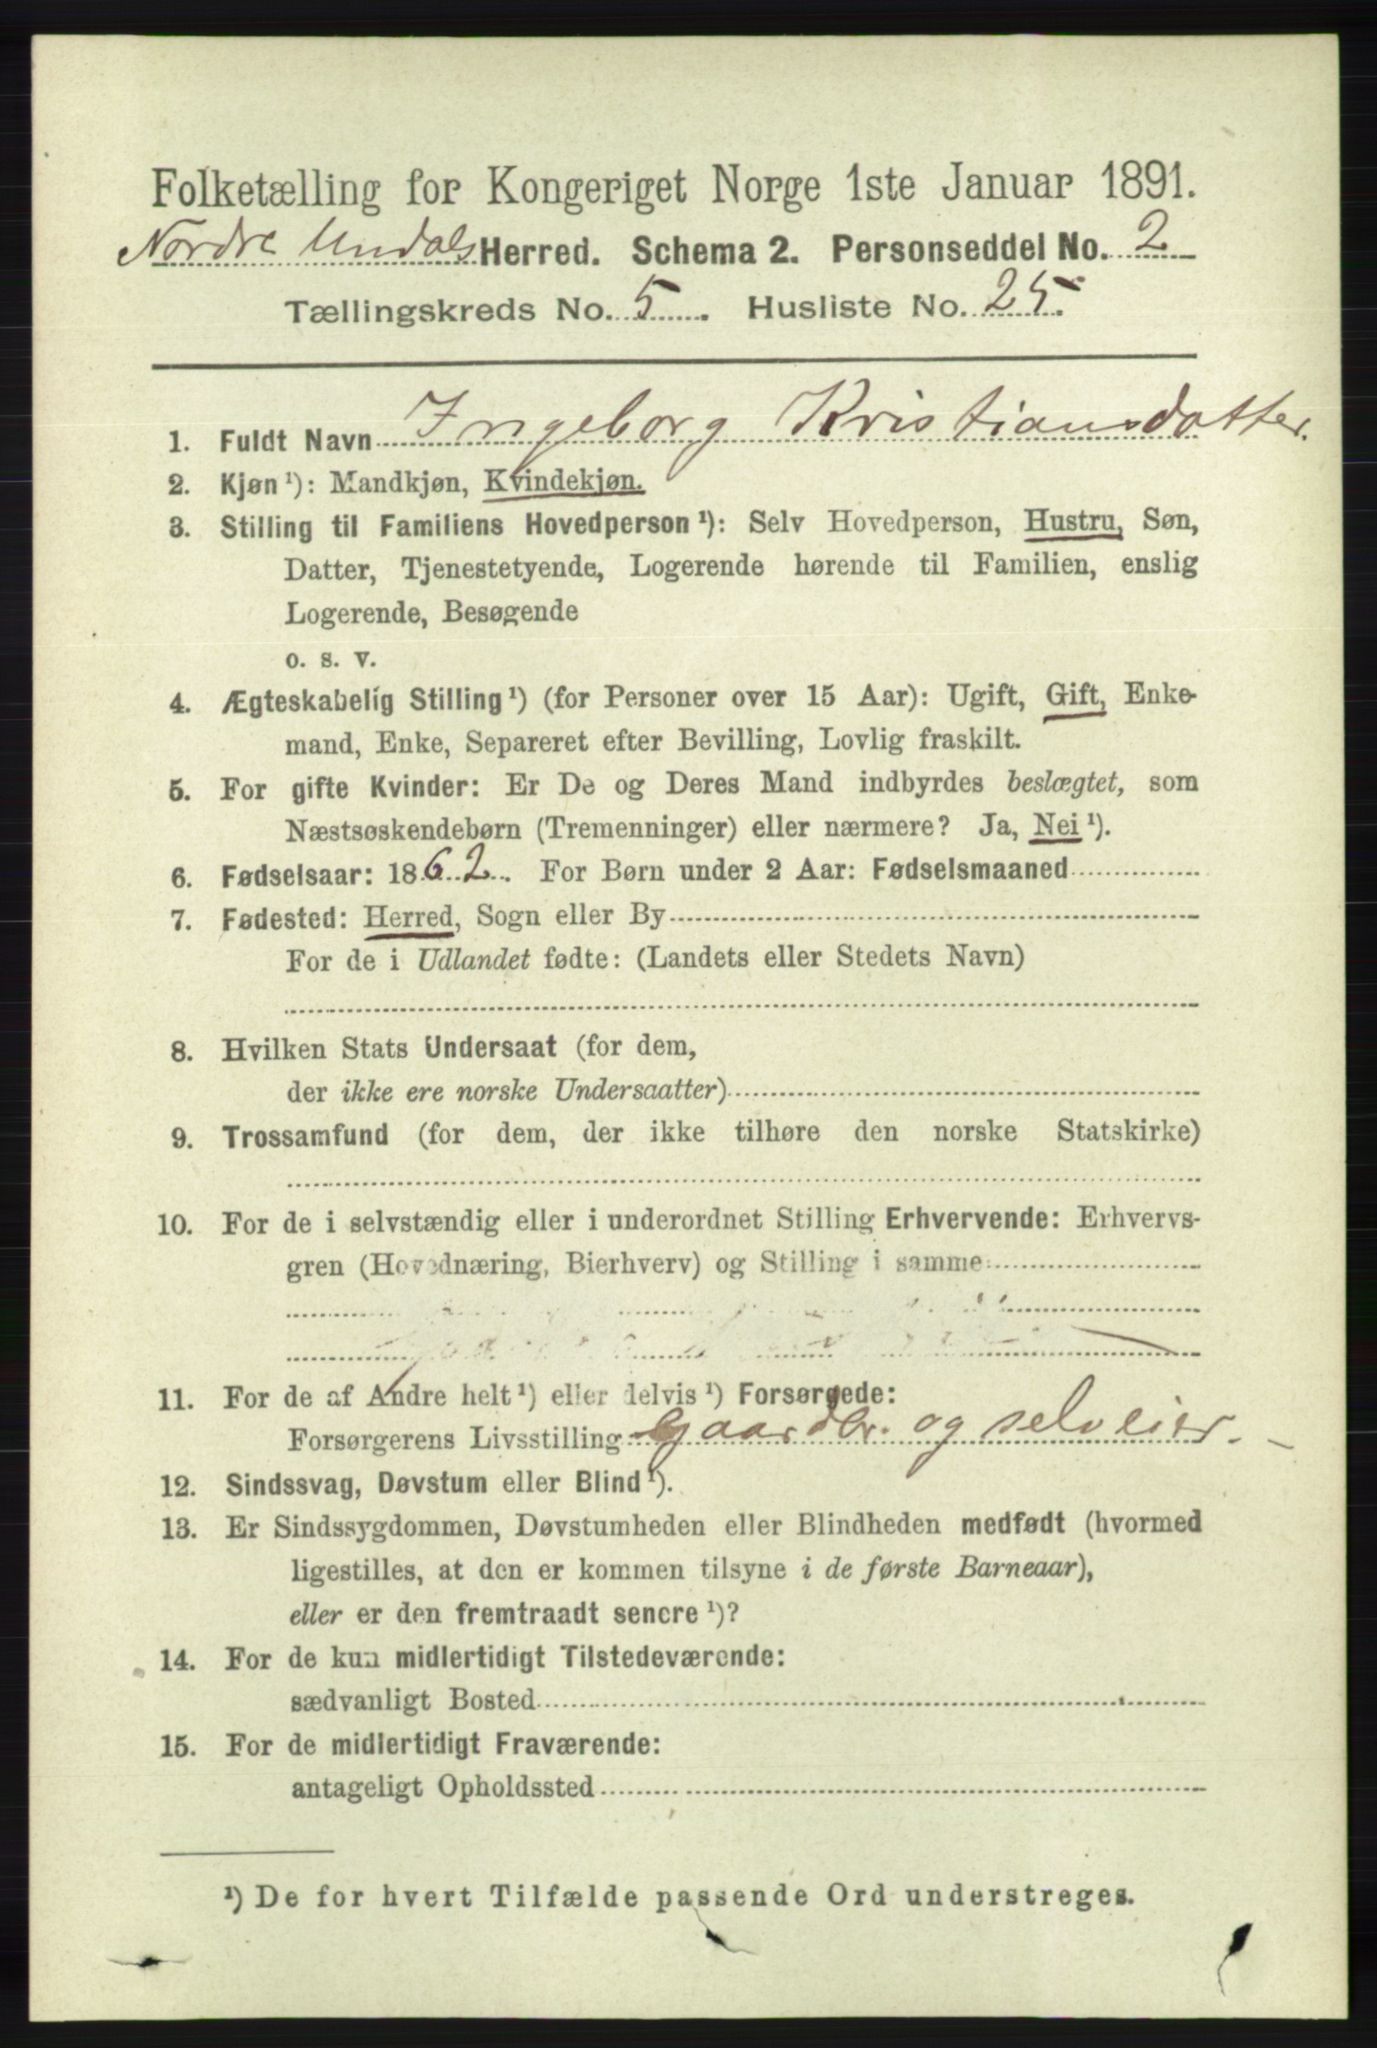 Folketælling for Kongeriget Norge 1ste Januar 1891.
Nordre Undals Herred. Schema 2. Personseddel No. 2
Tællingskreds No. 5. Husliste No. 25.
1. Fuldt Navn Ingeborg Kristiansdatter.
2. Kjøn¹): Mandkjøn, Kvindekjøn.
3. Stilling til Familiens Hovedperson¹): Selv Hovedperson, Hustru, Søn,
Datter, Tjenestetyende, Logerende hørende til Familien, enslig
Logerende, Besøgende
o. s. v.
4. Ægteskabelig Stilling¹) (for Personer over 15 Aar): Ugift, Gift, Enke-
mand, Enke, Separeret efter Bevilling, Lovlig fraskilt.
5. For gifte Kvinder: Er De og Deres Mand indbyrdes beslægtet, som
Næstsøskendebørn (Tremenninger) eller nærmere? Ja, Nei¹).
6. Fødselsaar: 1862. For Børn under 2 Aar: Fødselsmaaned
7. Fødested: Herred, Sogn eller By
For de i Udlandet fødte: (Landets eller Stedets Navn)
8. Hvilken Stats Undersaat (for dem,
der ikke ere norske Undersaatter)
9. Trossamfund (for dem, der ikke tilhøre den norske Statskirke)
10. For de i selvstændig eller i underordnet Stilling Erhvervende: Erhvervs-
gren (Hovednæring, Bierhverv) og Stilling i samme
11. For de af Andre helt¹) eller delvis¹) Forsørgede:
Forsørgerens Livsstilling Gaardbr. og selveier.
12. Sindssvag, Døvstum eller Blind¹).
13. Er Sindssygdommen, Døvstumheden eller Blindheden medfødt (hvormed
ligestilles, at den er kommen tilsyne i de første Barneaar),
eller er den fremtraadt senere¹)?
14. For de kun midlertidigt Tilstedeværende:
sædvanligt Bosted
15. For de midlertidigt Fraværende:
antageligt Opholdssted
¹) De for hvert Tilfælde passende Ord understreges.